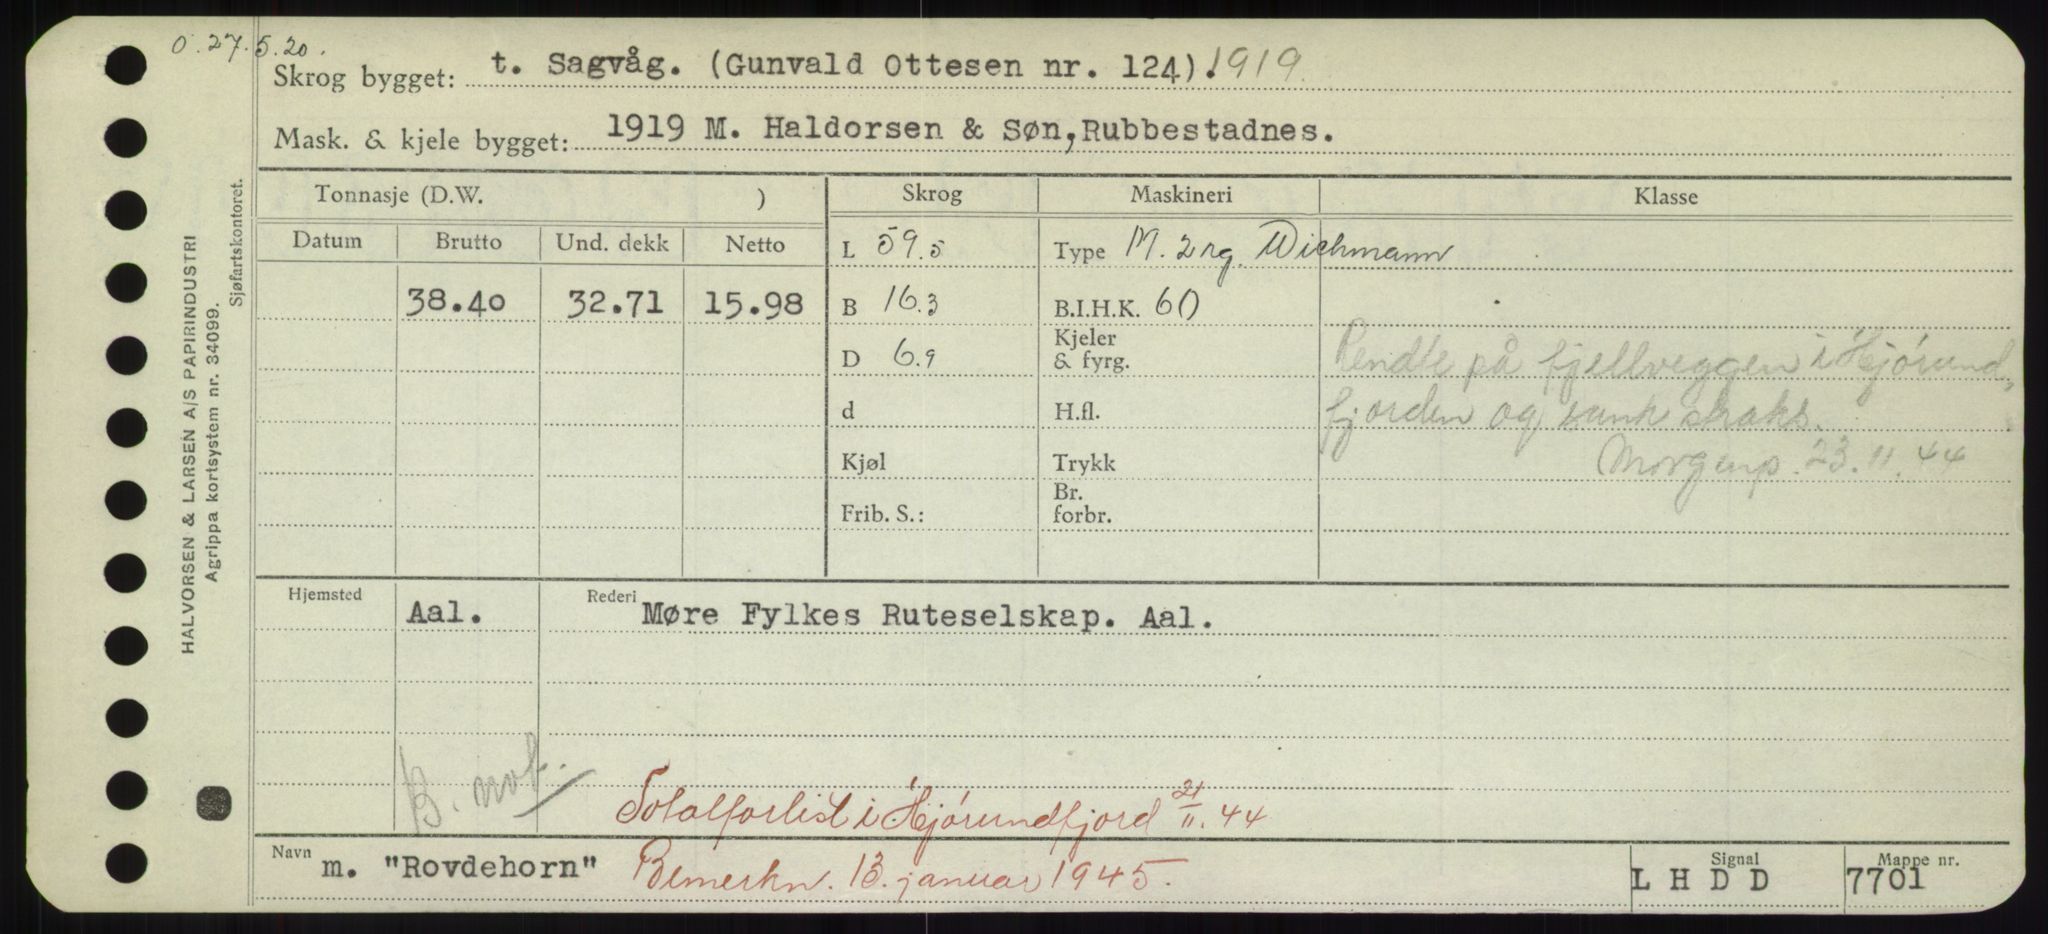 O. 27.5.20.
Skrog bygget: t. Sagvåg. (Gunvald Ottesen nr. 124). 1919.
Mask. & kjele bygget: 1919 M. Haldorsen & Søn, Rubbestadnes.
Tonnasje (D.W. ) Skrog Maskineri Klasse
Datum Brutto Und. dekk Netto L 59.5 Type M. 2 rg. Wichmann
38.40 32.71 15.98 B 16.3 B.I.H.K. 60
D 6.9 Kjeler & fyrg. Rendte på fjellveggen i Hjørund-
d H.fl. fjorden og sank straks.
Kjøl Trykk Morgenp. 23.11.44
Frib. S.: Br. forbr.
Hjemsted Aal. Rederi Møre Fylkes Ruteselskap. Aal.
B. not.
Totalforlist i Hjørundfjord 21/11.44
Navn m. "Rovdehorn" Bemerkn. 13. januar 1945. Signal L H D D Mappe nr. 7701
HALVORSEN & LARSEN A/S PAPIRINDUSTRI
Agrippa kortsystem nr. 34099.
Sjøfartskontoret.